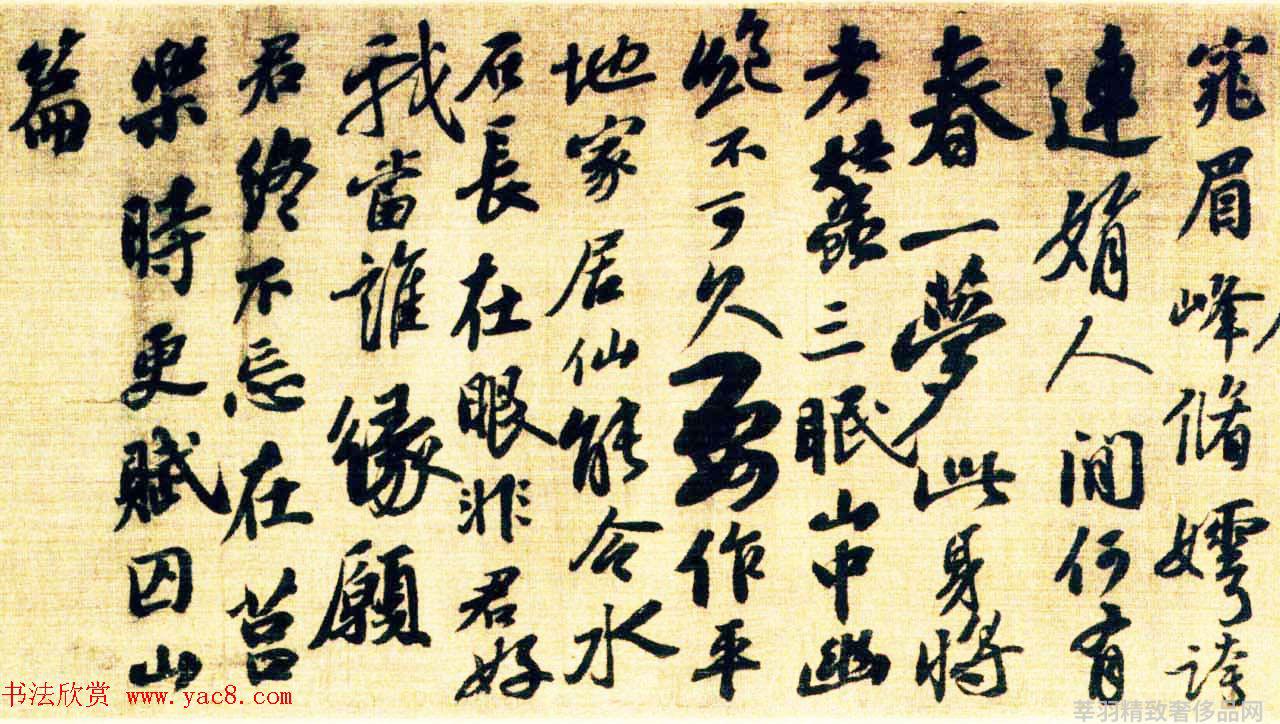 窕眉峰脩嫮誇
連娟人間何有
春一夢此身將
老蠶三眠山中幽
絕不可久要作平
地家居仙能令水
石長在眼非君好
我當誰緣願
君終不忘在莒
樂時更賦囚山
篇
书法欣赏 www.yac8.com
莘羽精致奢侈品网